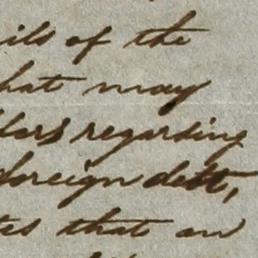 ils of the
hat may
lars regarding
foreign debt,
tes that an